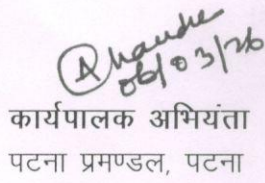 06/03/26
कार्यपालक अभियंता
पटना प्रमण्डल, पटना